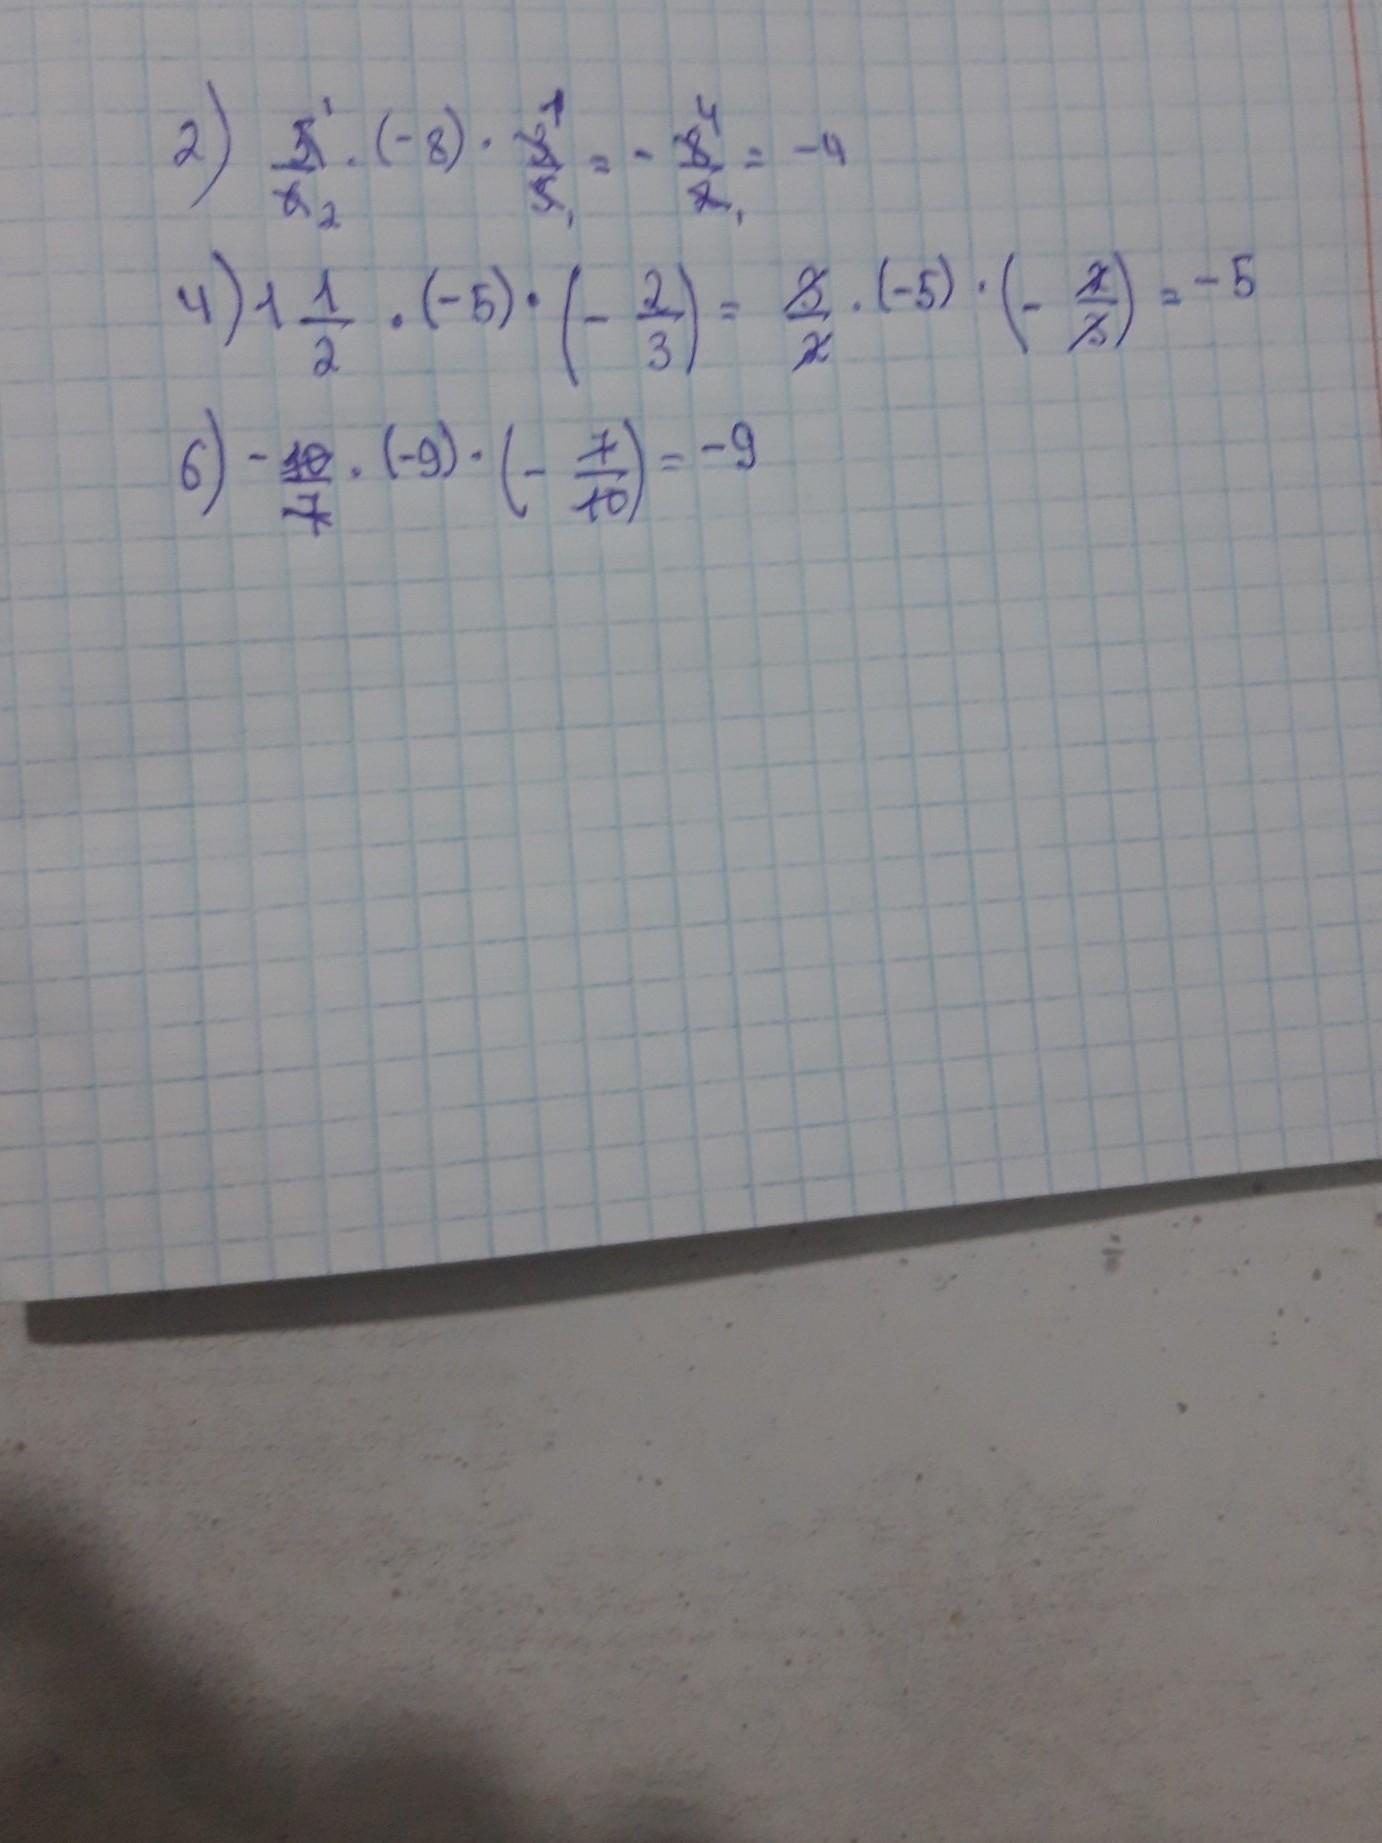 2) 5¹/6₂ · (-8) · 3¹/5₁ = - 8⁴/2₁ = -4
4) 1 1/2 · (-5) · (- 2/3) = 3/2 · (-5) · (- 2/3) = -5
6) - 10/7 · (-9) · (- 7/10) = -9